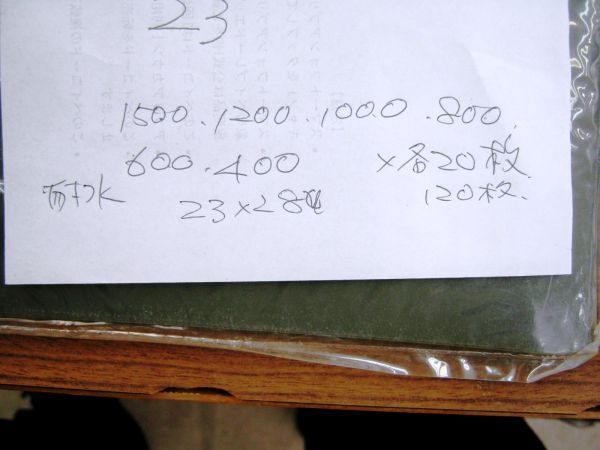 23
1500.1200.1000.800.
600.400 ×各20枚
耐水 23×28㎝ 120枚.